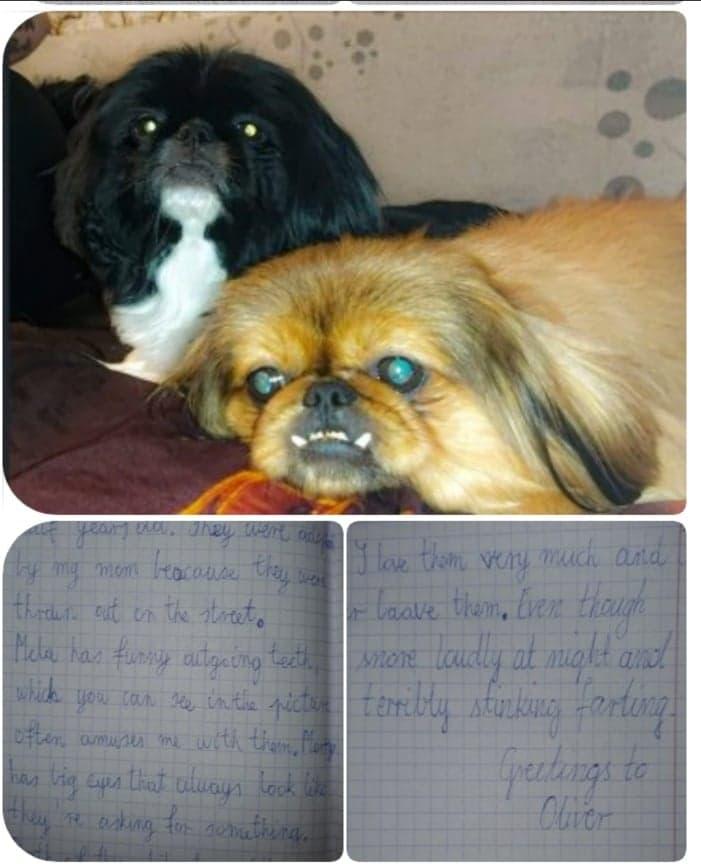 half years old. They were
by my mom beacause they were
thrown out on the street.
Mela has funny outgoing teeth,
which you can see in the picture
often amuses me with them.
has big eyes that always look like
they're asking for something.
I love them very much and
leave them. Even though
snore loudly at night and
terribly stinking farting.
Greetings to
Oliver